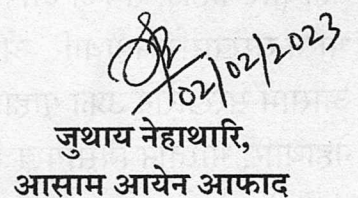 02/02/2023
जुथाय नेहाथारि,
आसाम आयेन आफाद